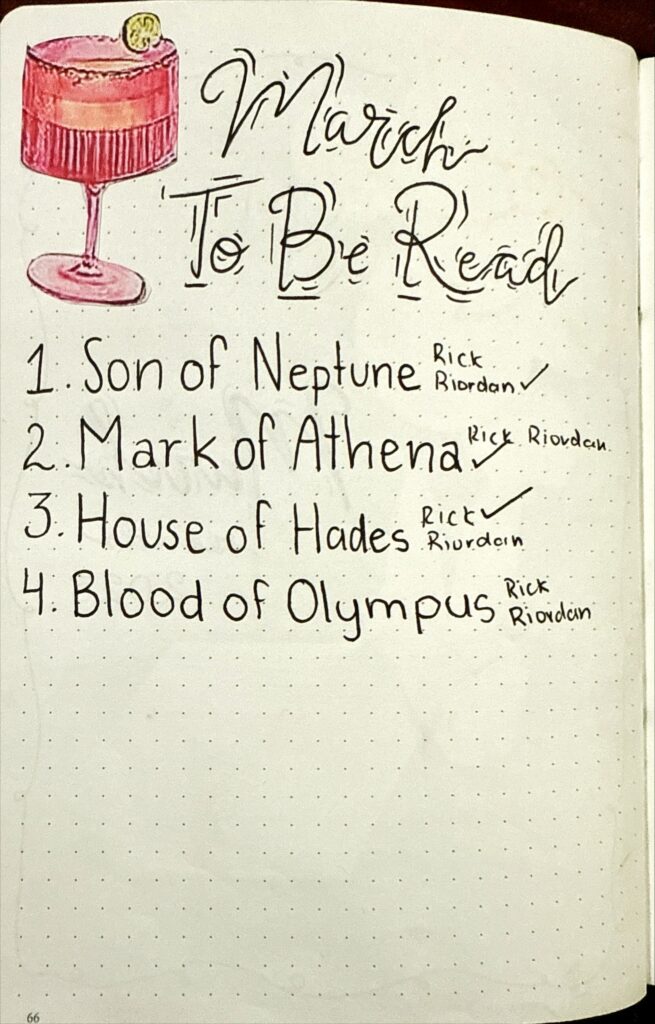 March
To Be Read
1. Son of Neptune Rick
Riordan ✓
2. Mark of Athena Rick Riordan ✓
3. House of Hades Rick ✓
Riordan
4. Blood of Olympus Rick
Riordan
66